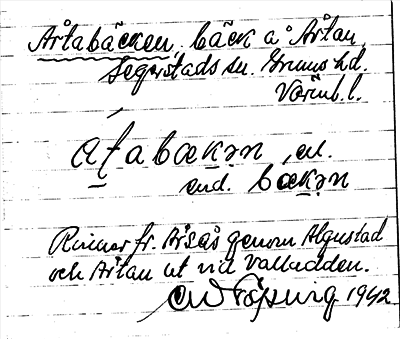 Årtabäcken, bäck a° Årtan,
Segerstads sn. Grums hd.
Värml. l.
aṭabækən, el.
end. bækən
Rinner fr. Årsås genom Algustad
och Årtan ut vid Valladden.
1942